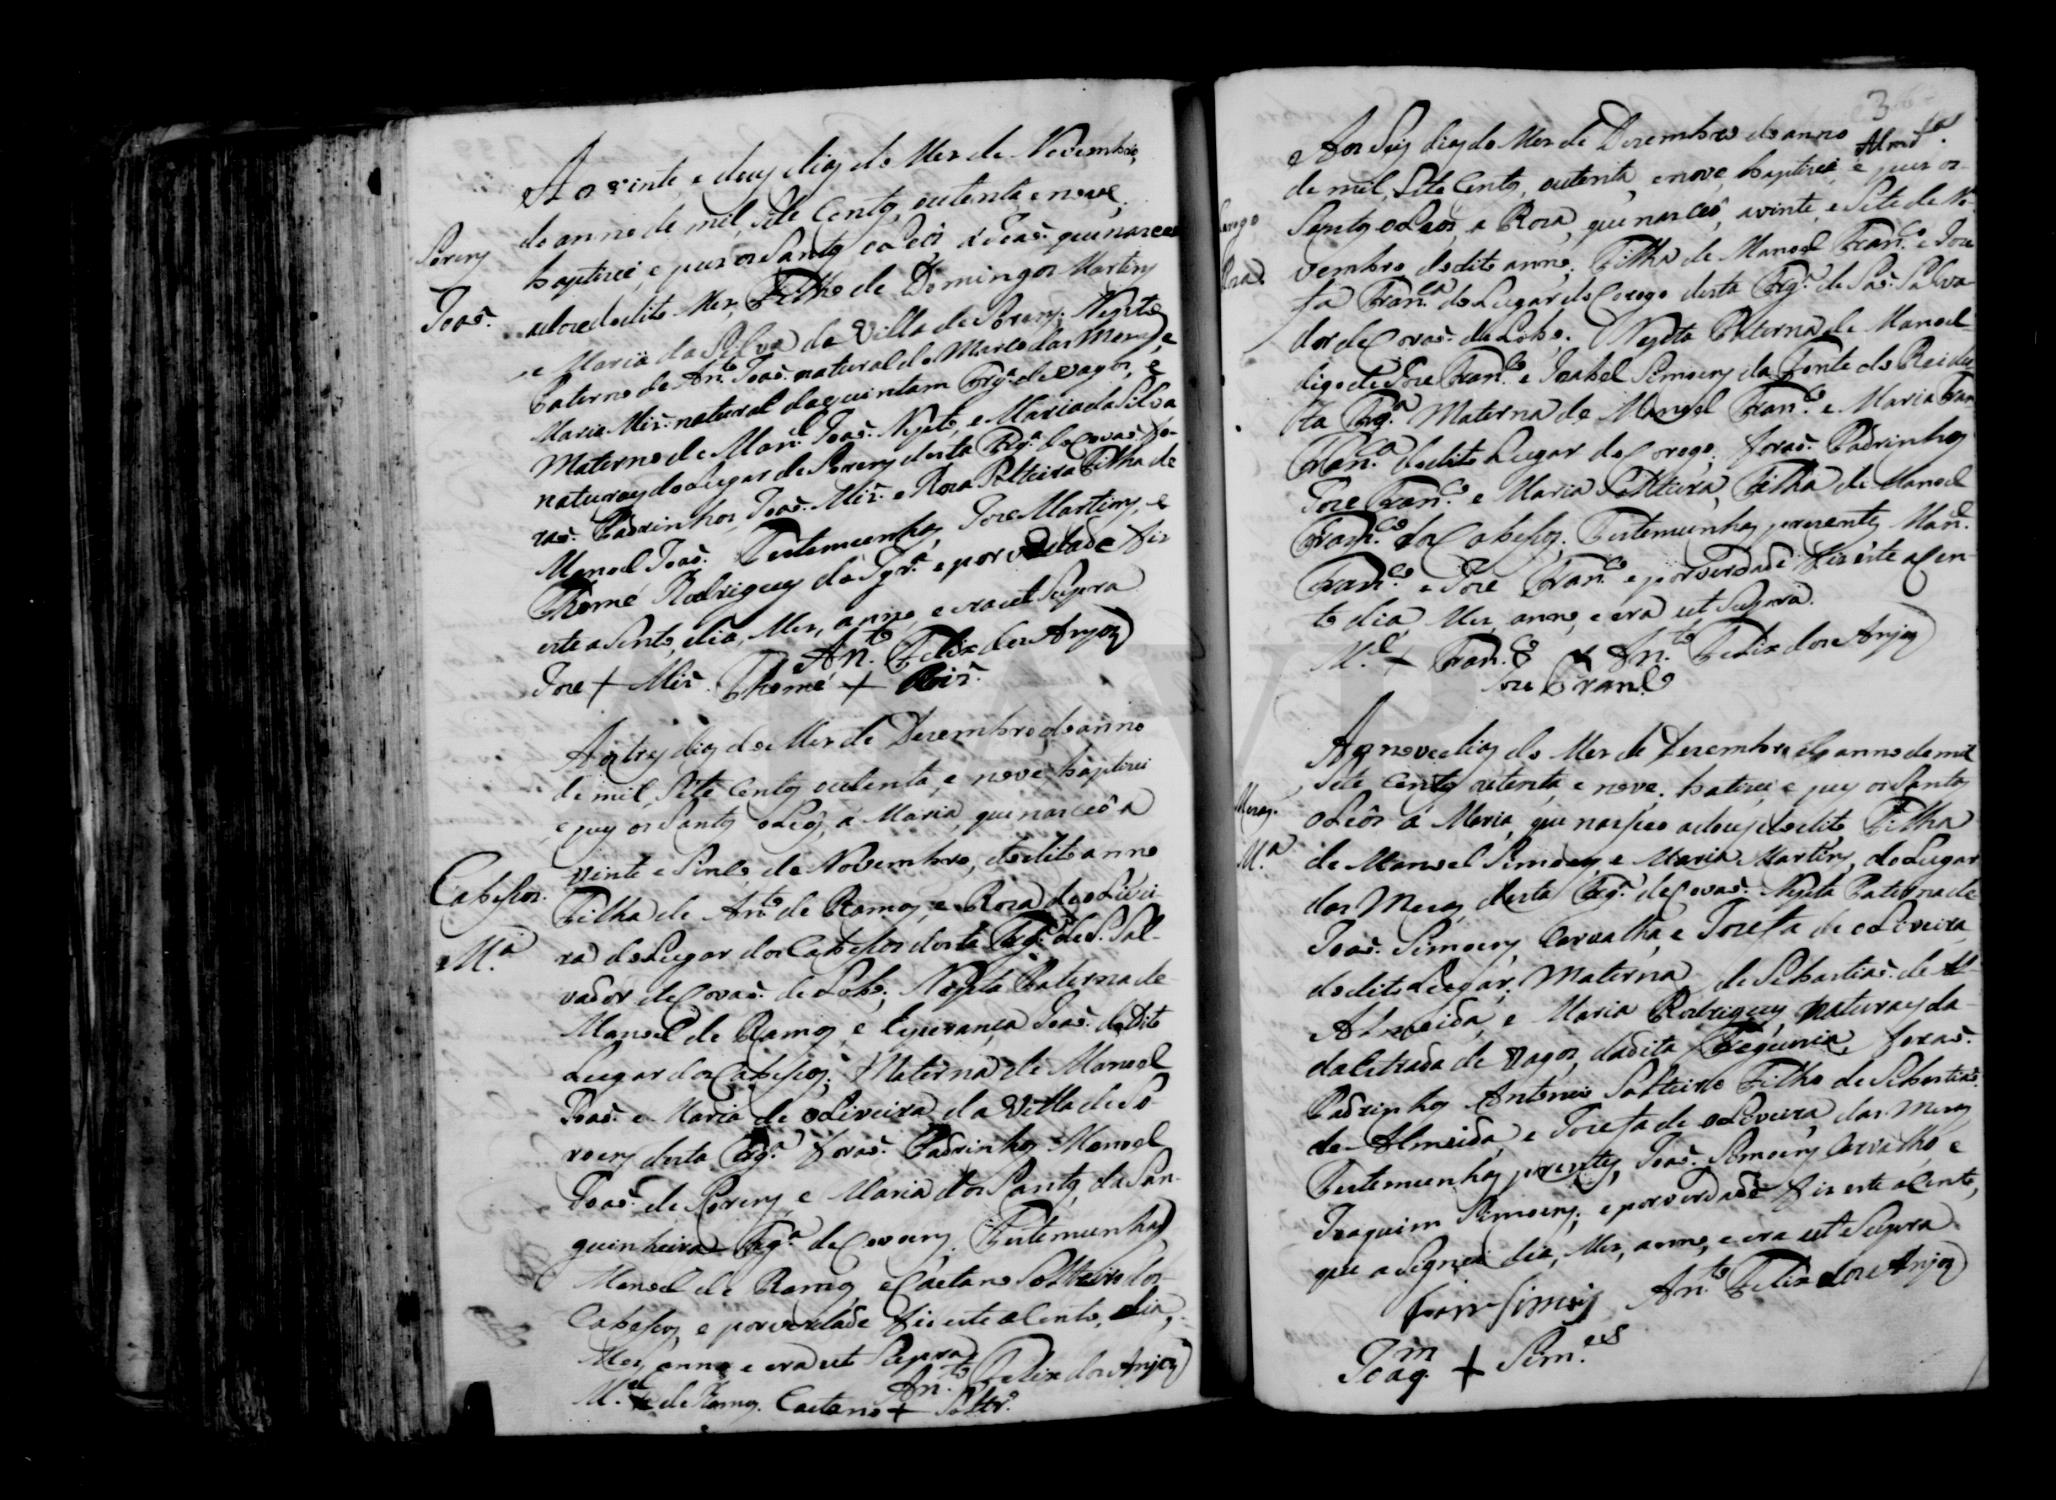 Aos vinte e dous dias do Mes de Novembro,
do anno de mil, sete Centos, outenta, e nove,
Sorens
baptizei, e puz os Santos oLeos a Joaõ. que nasceo
Joaõ.
a doze do dito Mes, Filho de Domingos Martins
e Maria da Silva da Villa de Sorens; Neptto
Paterno de Ant.º Joaõ. natural do Marco das Meras, e
Maria Miz. natural da quintam Frg.ª de vagos, e
Materno de Man.el Joaõ. Neptto, e Maria da Silva
naturays do Lugar de Sorens desta Frg.ª de Covaõ. fo-
raõ. Padrinhos, Joaõ. Miz. e Roza Solteira Filha de
Manoel Joaõ. Testemunhas, Joze Martins, e
Thomé Rodrigues da Igr.ª e por verdade fiz
este asento, dia, Mes, anno, e era ut Supra
An.to Felix dos Anjos
Joze + Miz. Thomé + Roiz.
Aos trez dias do Mes de Dezembro do anno
de mil, sete Centos outenta, e nove, baptizei
e puz os Santos oLeos, a Maria, que nasceo a
vinte e Sinco de Novembro, do dito anno
Cabeços.
Filha de Ant.º de Ramos, e Roza de oLivei-
M.ª
ra do Lugar dos Cabeços desta Frg.ª de S. Sal-
vador de Covaõ. de Lobo; Neptta Paterna de
Manoel de Ramos, e Esperança Joaõ. do Dito
Lugar dos Cabeços; Materna de Manoel
Joaõ. e Maria de oLiveira da Villa de So-
rens desta Frg.ª foraõ. Padrinhos Manoel
Joaõ. de Sorens, e Maria dos Santos, da San-
guinheira Frg.ª de Covoens. Testemunhas
Manoel de Ramos, e Caetano Solteiro dos
Cabeços, e por verdade fiz este aCento, dia,
Mes, anno e era ut Supra
An.to Felix dos Anjos
M.el + de Ramos. Caetano + Soltr.º
3
Aos Seis dias do Mes de Dezembro do anno
de mil, sete Centos, outenta, e nove, baptizei, e puz os
Corogo
Santos oLeos, a Roza, que nasceo, a vinte, e Sete de No-
Roza
vembro do dito anno; Filha de Manoel Fran.co e Joze
fa Fran.ca do Lugar do Corogo desta Frg.ª de Saõ. Salva-
dor de Covaõ. de Lobo; Neptta Paterna de Manoel
digo de Joze Fran.co e Izabel Simoens da Fonte do Rei des
ta Frg.ª Materna de Manoel Fran.co e Maria Fran
Fran.ca do dito Lugar do Corogo; foraõ. Padrinhos
Joze Fran.co e Maria Solteira, Filha de Manoel
Fran.co dos Cabeços; Testemunhas prezentes Man.el
Fran.co e Joze Fran.co e por verdade fiz este aCen-
to dia Mes, anno, e era ut Supra.
M.el + Fran.co An.to Felix dos Anjos
Joze Fran.co
Aos nove dias do Mes de Dezembro do anno de mil
sete Centos outenta, e nove, batizei, e puz os Santos
Meras.
oLeos a Maria, que nasceo a dous do dito Filha
M.ª
de Manoel Simoens, e Maria Martins, do Lugar
das Meras, desta Frg.ª de Covaõ. Neptta Paterna de
Joaõ. Simoens, Carvalho, e Jozefa de oLiveira
do dito Lugar; Materna de Sebastiaõ. de Al
Almeida, e Maria Rodrigues, naturays da
da Estrada de Vagos, da dita Freguizia, foraõ.
Padrinhos Antonio Solteiro Filho de Sebastiaõ.
de Almeida, e Jozefa de oLiveira, das Meras
Testemunhas prezentes, Joaõ. Simoens Carvalho e
Joaquim Simoens; e por verdade fiz este aCento,
que aSignei dia, Mes, anno, e era ut Supra
An.to Felix dos Anjos
Joaq.m + Sim.es